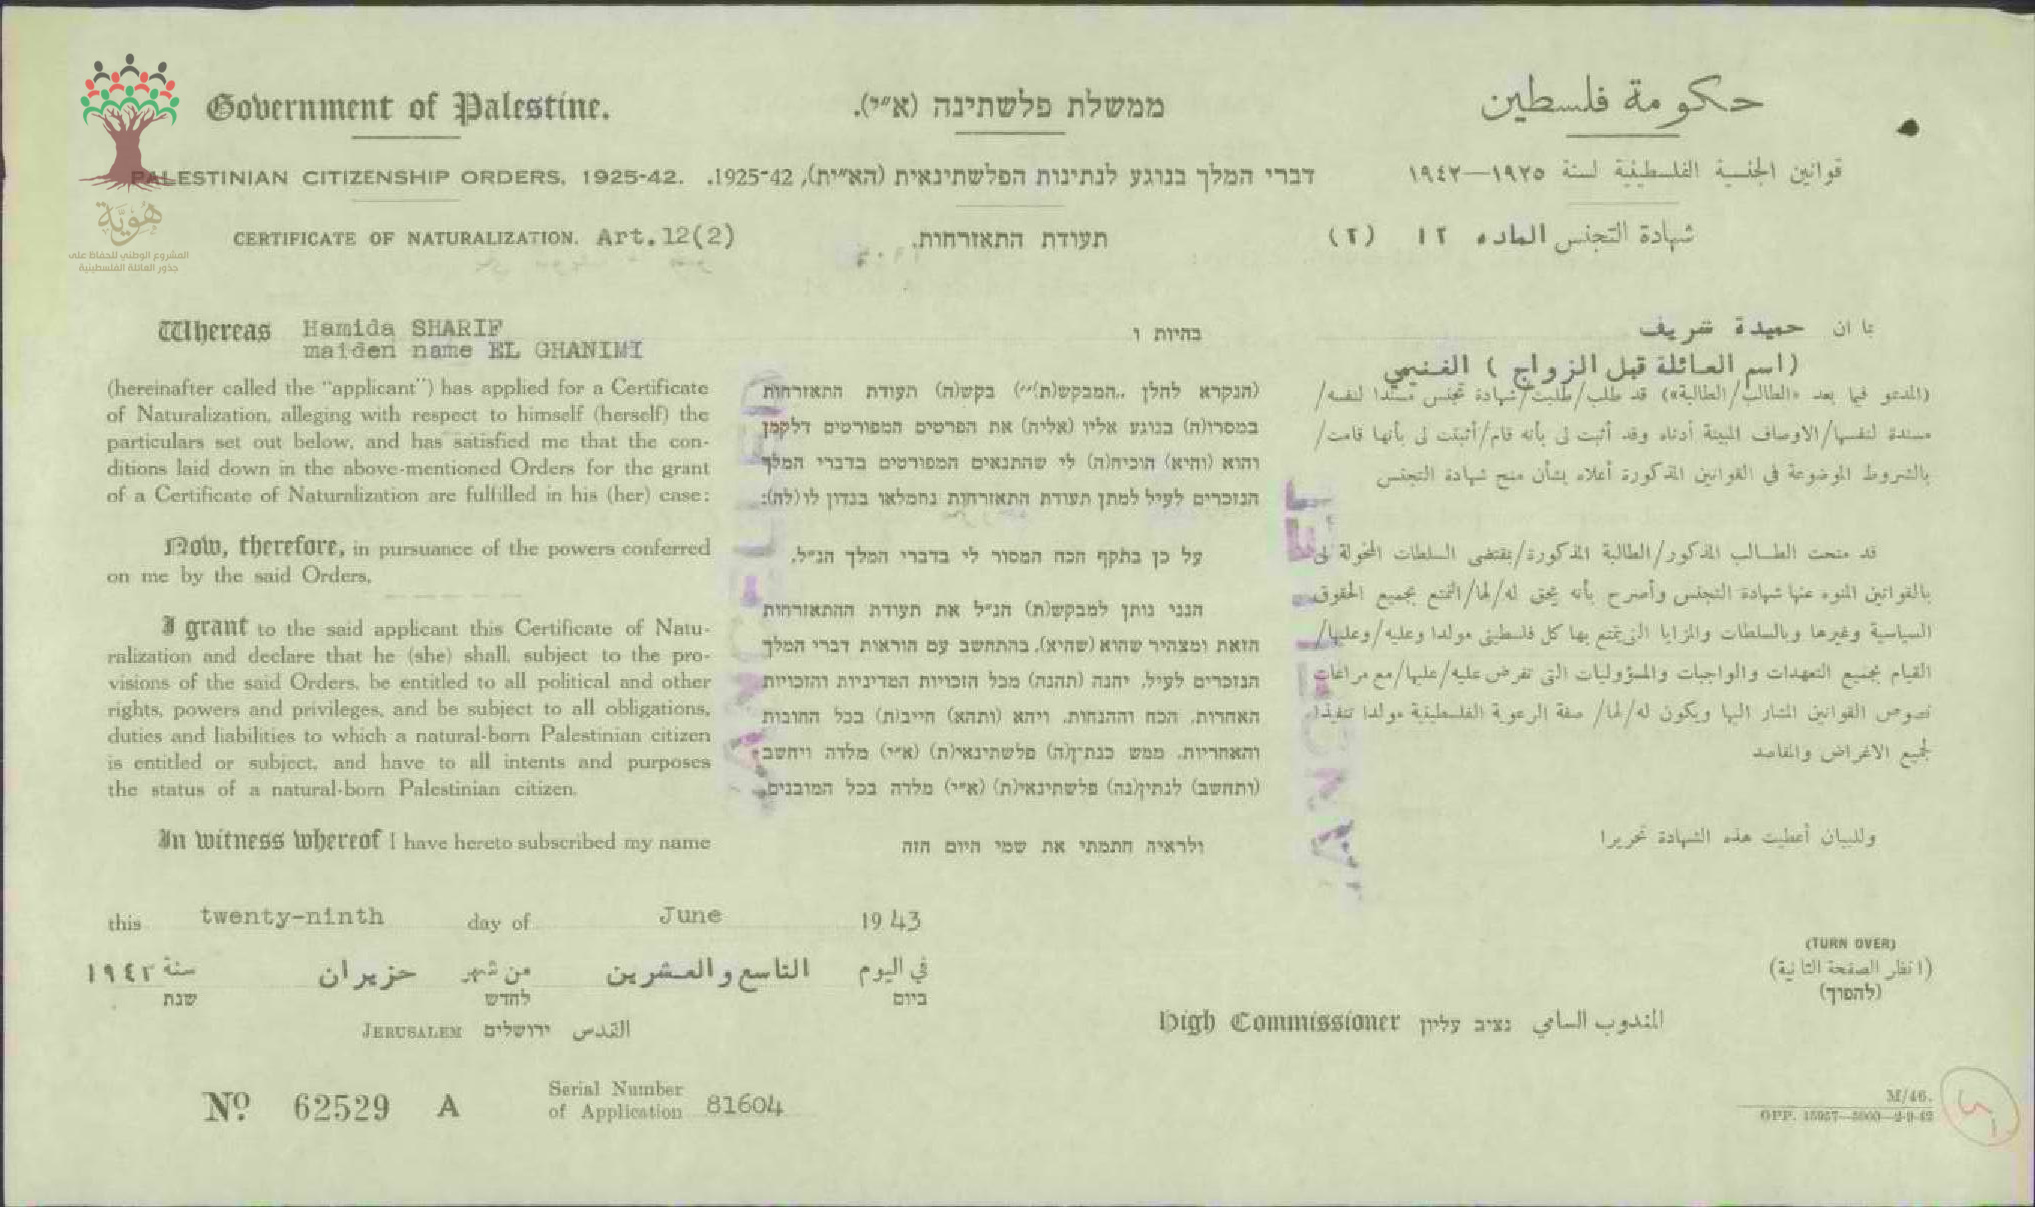 Government of Palestine.
PALESTINIAN CITIZENSHIP ORDERS, 1925-42.
CERTIFICATE OF NATURALIZATION. Art.12(2)
ממשלת פלשתינה (א״י).
דברי המלך בנוגע לנתינות הפלשתינאית (הא״ית), 1925-42.
תעודת התאזרחות.
حكومة فلسطين
قوانين الجنسية الفلسطينية لسنة ١٩٢٥—١٩٤٢
شهادة التجنس الماده ١٢ (٢)
هُوِيَّة
المشروع الوطني للحفاظ على
جذور العائلة الفلسطينية
Whereas Hamida SHARIF
maiden name EL GHANIMI
(hereinafter called the "applicant") has applied for a Certificate
of Naturalization, alleging with respect to himself (herself) the
particulars set out below, and has satisfied me that the con-
ditions laid down in the above-mentioned Orders for the grant
of a Certificate of Naturalization are fulfilled in his (her) case:
Now, therefore, in pursuance of the powers conferred
on me by the said Orders,
I grant to the said applicant this Certificate of Natu-
ralization and declare that he (she) shall, subject to the pro-
visions of the said Orders, be entitled to all political and other
rights, powers and privileges, and be subject to all obligations,
duties and liabilities to which a natural-born Palestinian citizen
is entitled or subject, and have to all intents and purposes
the status of a natural-born Palestinian citizen.
In witness whereof I have hereto subscribed my name
בהיות ו
(הנקרא להלן ,,המבקש(ת)״) בקש(ה) תעודת התאזרחות
במסרו(ה) בנוגע אליו (אליה) את הפרטים המפורטים דלקמן
והוא (והיא) הוכיח(ה) לי שהתנאים המפורטים בדברי המלך
הנזכרים לעיל למתן תעודת התאזרחות נתמלאו בנדון לו(לה):
על כן בתקף הכח המסור לי בדברי המלך הנ״ל,
הנני נותן למבקש(ת) הנ״ל את תעודת ההתאזרחות
הזאת ומצהיר שהוא (שהיא), בהתחשב עם הוראות דברי המלך
הנזכרים לעיל, יהנה (תהנה) מכל הזכויות המדיניות והזכויות
האחרות, הכח וההנחות, ויהא (ותהא) חייב(ת) בכל החובות
והאחריות, ממש כנתין(ה) פלשתינאי(ת) (א״י) מלדה ויחשב
(ותחשב) לנתין(נה) פלשתינאי(ת) (א״י) מלדה בכל המובנים.
ולראיה חתמתי את שמי היום הזה
بما ان حميدة شريف
(اسم العائلة قبل الزواج ) الغنيمي
(المدعو فيما بعد «الطالب/الطالبة») قد طلب/طلبت/شهادة تجنس مسندا لنفسه/
مسندة لنفسها/الاوصاف المبينة أدناه وقد أثبت لى بأنه قام/أثبتت لى بأنها قامت/
بالشروط الموضوعة في القوانين المذكورة أعلاه بشأن منح شهادة التجنس
قد منحت الطالب المذكور/الطالبة المذكورة/بمقتضى السلطات المخولة لى
بالقوانين المنوه عنها شهادة التجنس وأصرح بأنه يحق له/لها/التمتع بجميع الحقوق
السياسية وغيرها وبالسلطات والمزايا التى يتمتع بها كل فلسطينى مولدا وعليه/وعليها/
القيام بجميع التعهدات والواجبات والمسؤوليات التى تفرض عليه/عليها/مع مراعات
نصوص القوانين المشار اليها ويكون له/لها/ صفة الرعوية الفلسطينية مولدا تنفيذا
لجميع الاغراض والمقاصد
وللبيان أعطيت هذه الشهادة تحريرا
CANCELLED
CANCELLED
this twenty-ninth day of June 1943
في اليوم التاسع والعشرين من شهر حزيران سنة ١٩٤٣
ביום לחדש שנת
JERUSALEM ירושלים القدس
(TURN OVER)
(انظر الصفحة الثانية)
(להפוך)
High Commissioner נציב עליון المندوب السامي
No. 62529 A
Serial Number
of Application 81604
M/46.